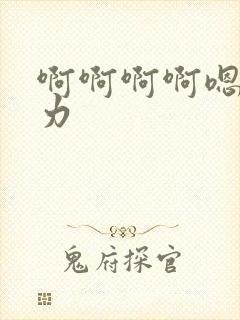 啊啊啊啊嗯
力
鬼府探官